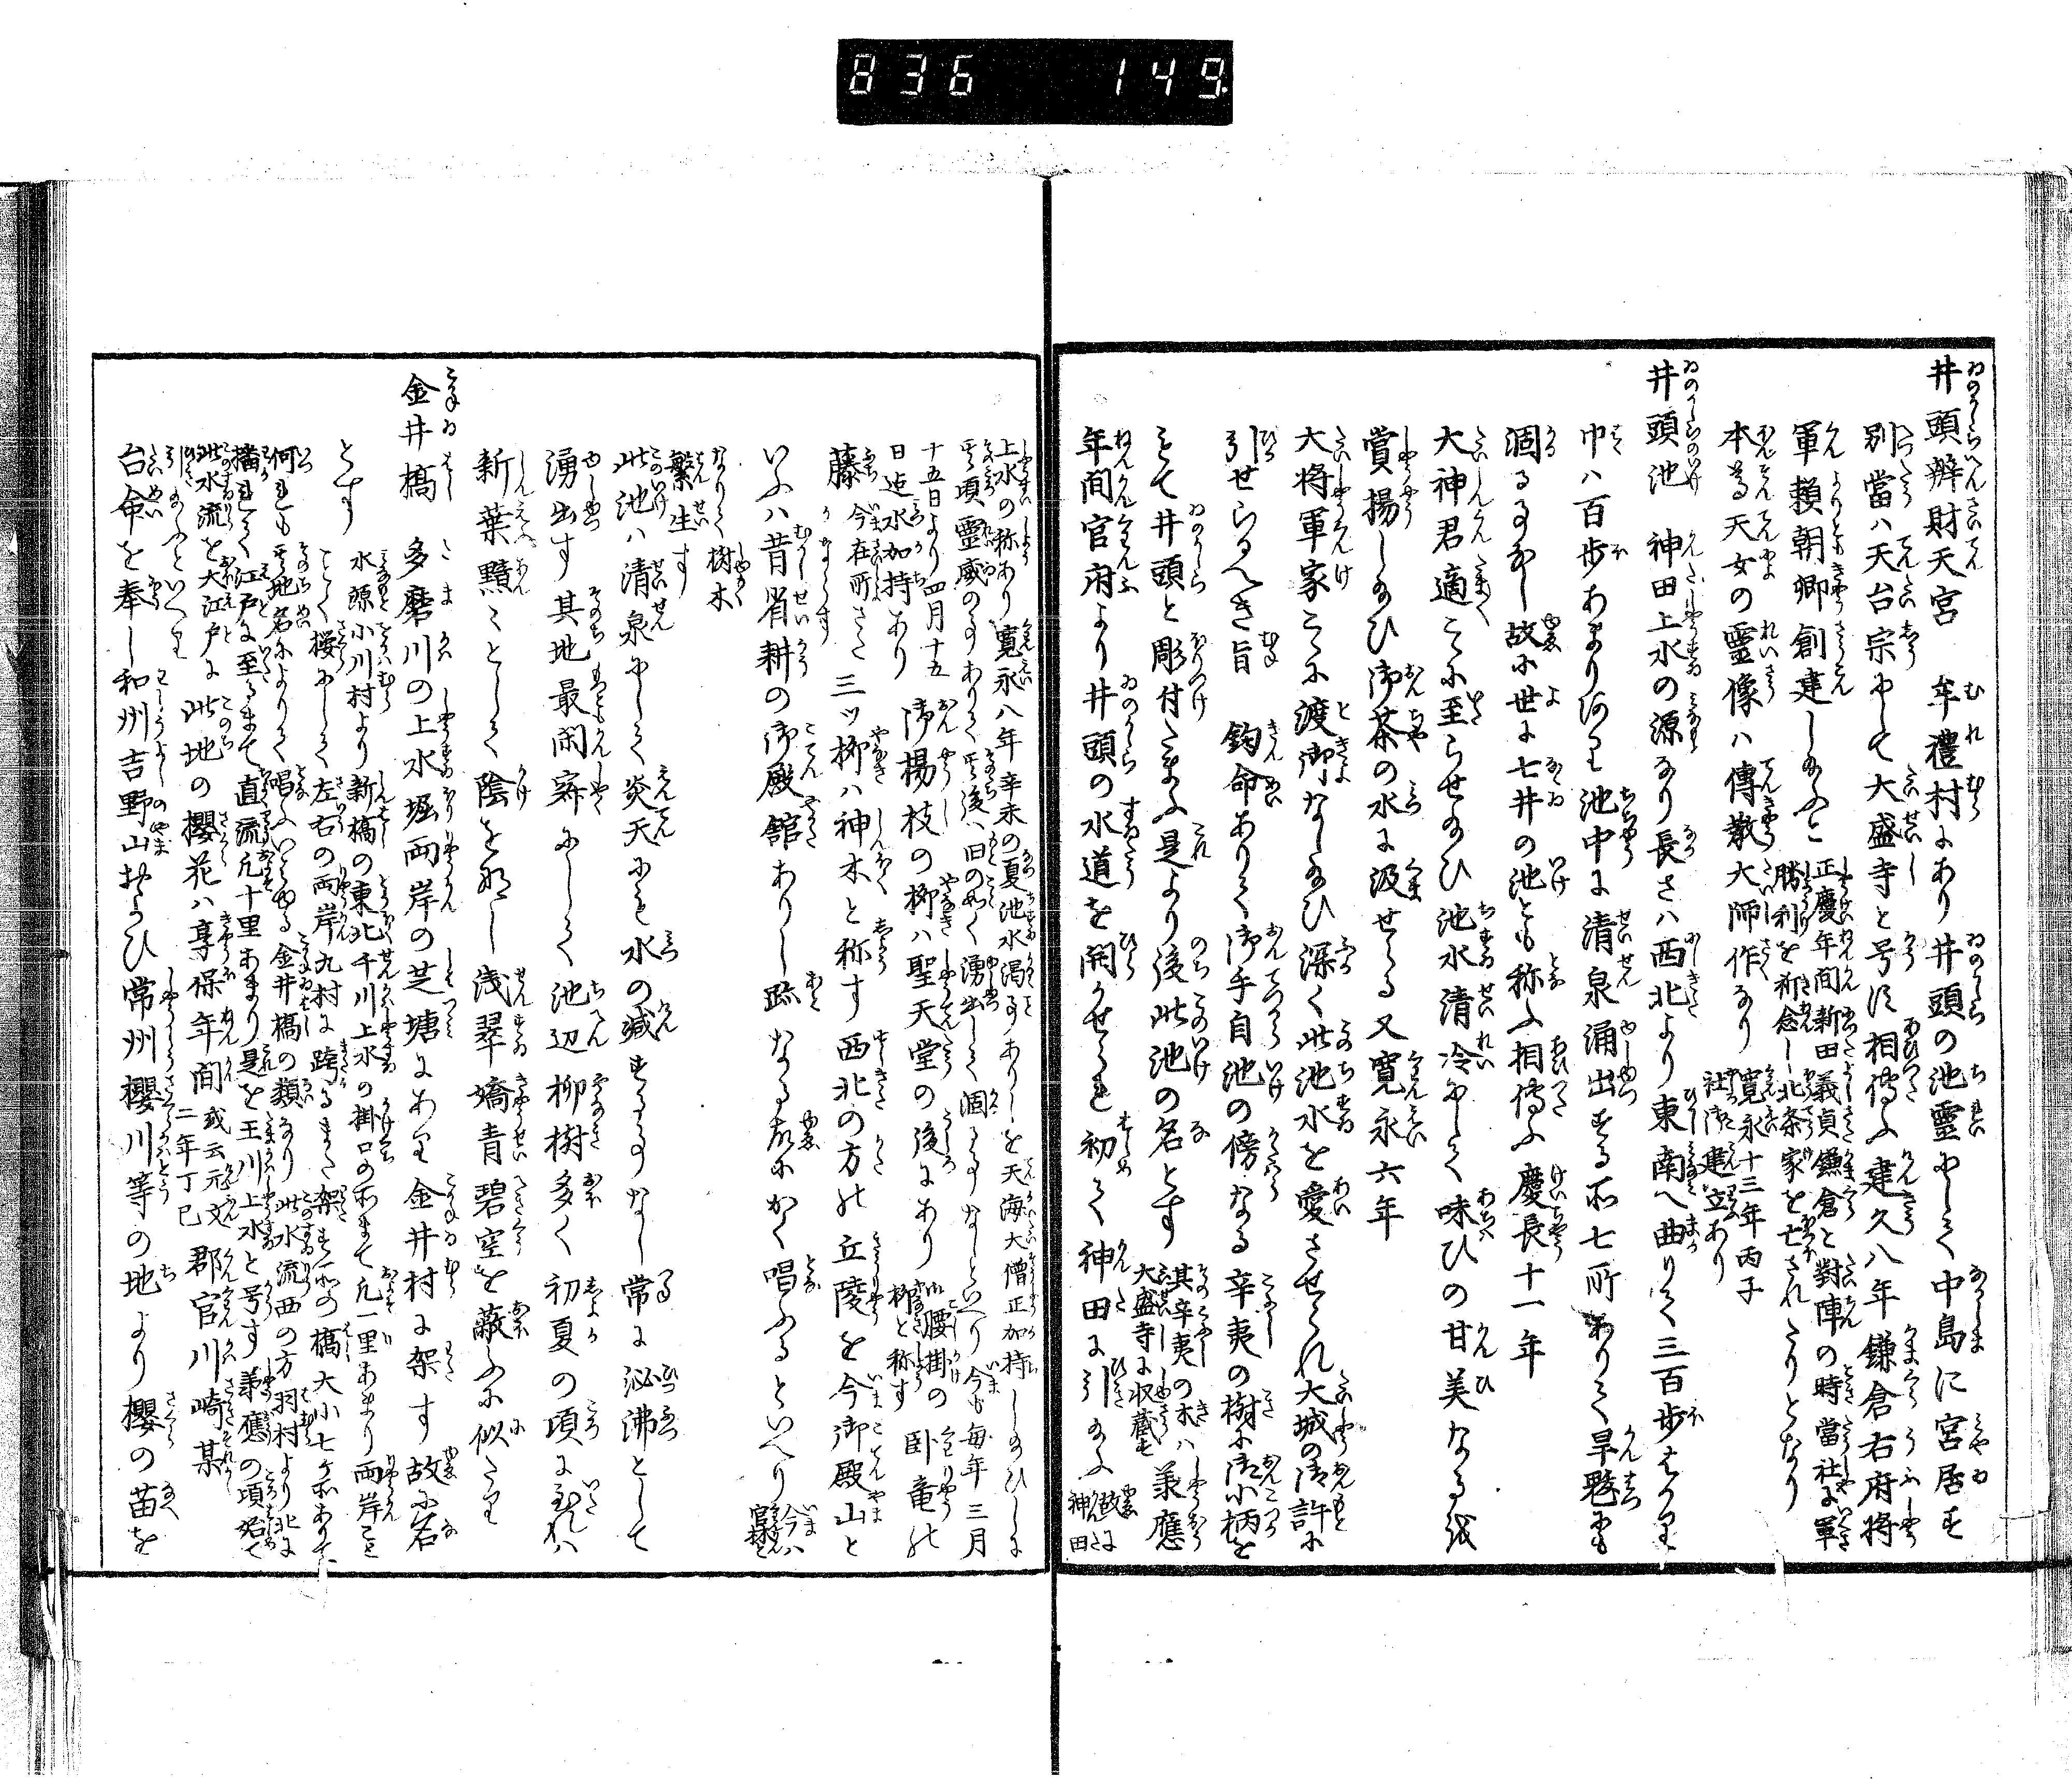 836 149.
井頭辨財天宮 牟禮村にあり井頭の池靈にして中島に宮居す
別當ハ天台宗にして大盛寺と号す相傳ふ建久八年鎌倉右府將
軍賴朝卿創建し給ふと
正慶年間新田義貞鎌倉と對陣の時當社に軍
勝利を祈念し北条家を亡されたりとなり
本尊天女の靈像ハ傳教大師作なり
寛永十三年丙子
社御建立あり
井頭池 神田上水の源なり長さハ西北より東南へ曲りて三百歩はかり
巾ハ百歩あまりあり池中に清泉涌出する所七所ありて旱魃にも
涸るゝ事なし故に世に七井の池とも称ふ相傳ふ慶長十一年
大神君適こゝに至らせ給ひ池水清冷にして味ひの甘美なるを
賞揚し給ひ御茶の水に汲せらる又寛永六年
大將軍家こゝに渡御なし給ひ深く此池水を愛させられ大城の御許に
引せらるへき旨 鈞命ありて御手自池の傍なる辛夷の樹に御小柄を
もて井頭と彫付たまふ是より後此池の名とす
其辛夷の木ハ
大盛寺に収蔵せり
兼應
年間官府より井頭の水道を開かせられ初て神田に引給ふ
故に
神田
上水の称あり寛永八年辛未の夏池水渇る事ありしを天海大僧正加持し給ひしに
其頃靈感の事ありて其後ハ旧の如く湧出して涸るゝ事なしといへり今も毎年三月
十五日より四月十五
日迄水加持あり
御楊枝の柳ハ聖天堂の後にあり
御腰掛の
柳と称す
臥竜の
藤
今在所さた
かならす
三ツ柳ハ神木と称す西北の方の丘陵を今御殿山と
いふハ昔省耕の御殿舘ありし跡なる故にかく唱ふるといへり
今ハ
官林と
なりて樹木
繁生す
此池ハ清泉にして炎天にも水の減する事なし常に泌沸として
湧出す其地最閑寂にして池辺柳樹多く初夏の頃に至れハ
新葉黯ことして陰をなし浅翠嬌青碧空を蔽ふに似たり
金井橋 多磨川の上水堀両岸の芝塘にあり金井村に架す故に名
とす
水源小川村より新橋の東北千川上水の掛口の所まて凡一里あまり両岸こと
ことく桜にして左右の両岸九村に跨るまた架する所の橋大小七ヶ所ありて
何れも其地名によりて唱ふいはゆる金井橋の類なり此水流西の方羽村より北に
當れる江戸に至るまて直流凡十里あまり是を玉川上水と号す兼應の頃始て
此水流を大江戸に
引給ふといへり
此地の櫻花ハ享保年間
或云元文
二年丁巳
郡官川崎某
台命を奉し和州吉野山および常州櫻川等の地より櫻の苗を